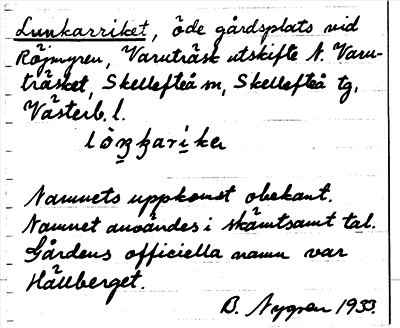 Lunkarriket, öde gårdsplats vid
Röjmyren, Varuträsk utskifte N. Varu-
träsket, Skellefteå sn, Skellefteå tg,
Västerb. l.
Namnets uppkomst obekant.
Namnet användes i skämtsamt tal.
Gårdens officiella namn var
Hällberget.
B. Nygren 1933.